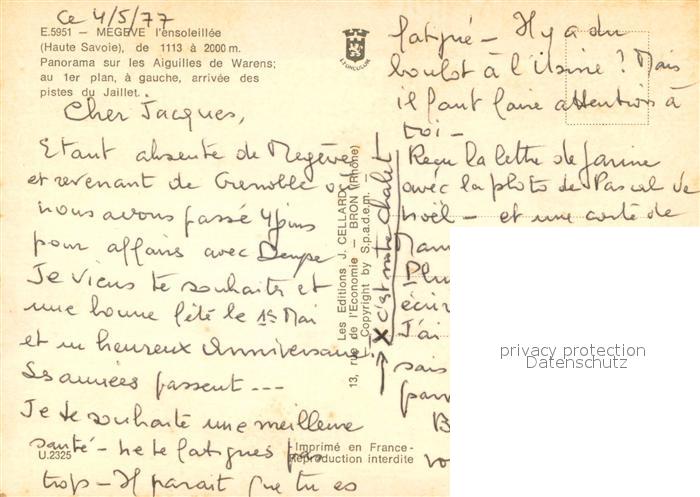 Ce 4/5/77
E.5951 — MEGÈVE l'ensoleillée
(Haute Savoie), de 1113 à 2000 m.
Panorama sur les Aiguilles de Warens;
au 1er plan, à gauche, arrivée des
pistes du Jaillet.
Cher Jacques,
Etant absente de Megève
et revenant de Grenoble où
nous avons passé 4 jours
pour affaires avec
Je viens te souhaiter et
une bonne fête le 1er Mai
et un heureux Anniversaire.
Les années passent ---
Je te souhaite une meilleure
santé - ne te fatigues pas
trop - Il parait que tu es
U.2325
Imprimé en France-
Reproduction interdite
Les Editions J. CELLARD
13, rue de l'Economie — BRON (Rhône)
Copyright by S.p.a.d.e.m. —
→ X c'est notre chalet
fatigué - Il y a du
boulot à l'Usine ? Mais
il faut faire attention à
toi -
Reçu la lettre de Janine
avec la photo de Pascal de
noël - et une carte de
Mam
Plu
écri
J'ai
sais
B
vo
privacy protection
Datenschutz